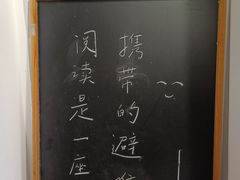 阅读是一座
携带的避